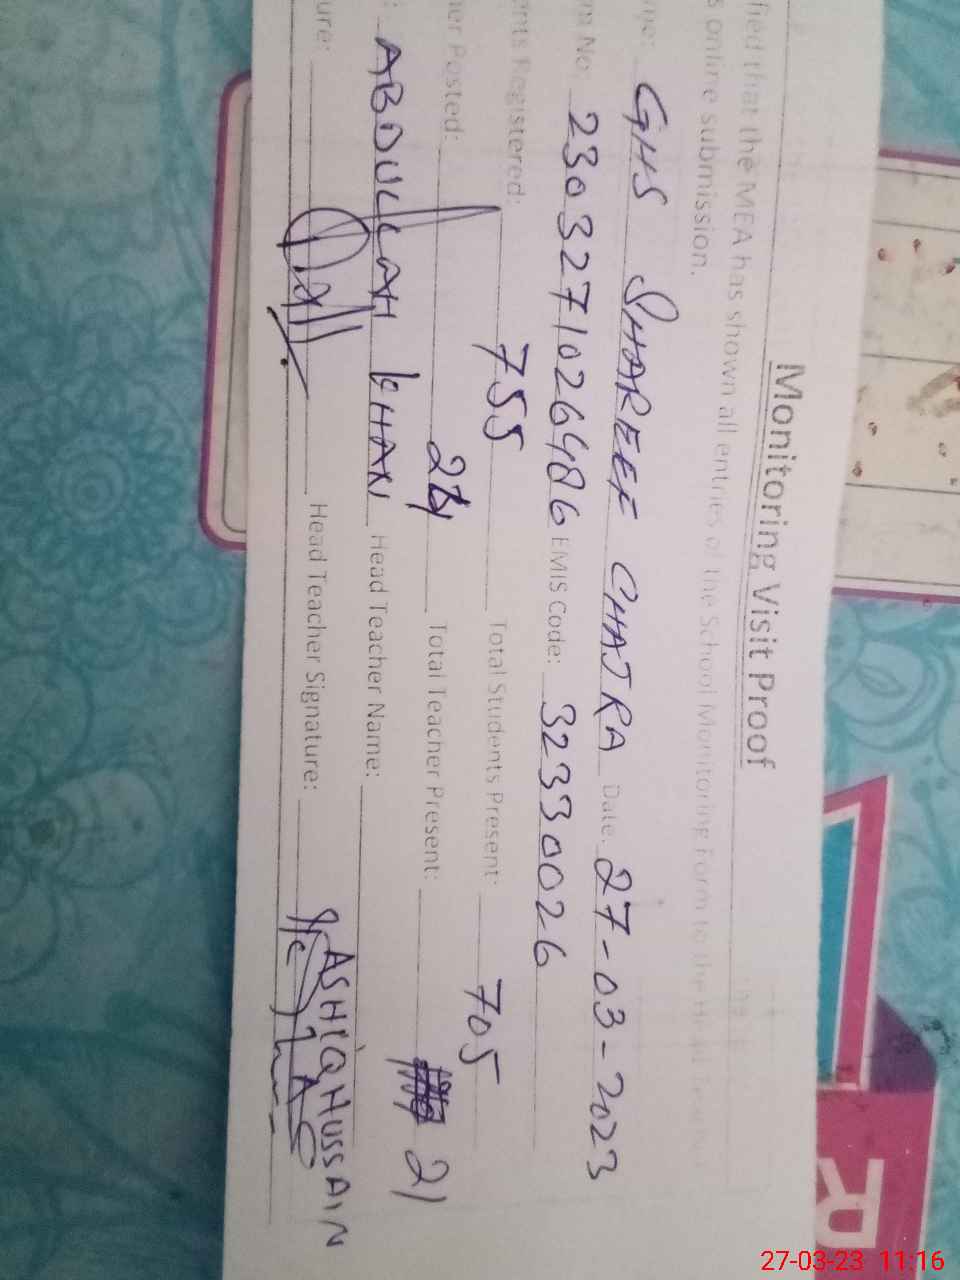 Monitoring Visit Proof
fied that the MEA has shown all entries of the School Monitoring Form to the Head
s online submission.
me: GHS SHAREEF CHAJRA Date: 27-03-2023
No. 230327102648 6 EMIS Code: 32330026
ents Registered: 755 Total Students Present: 705
her Posted: Total Teacher Present: 21
: ABDULLAH KHAN Head Teacher Name:
ASHIQ HUSSAIN
ure: Head Teacher Signature:
R
27-03-23 11:16